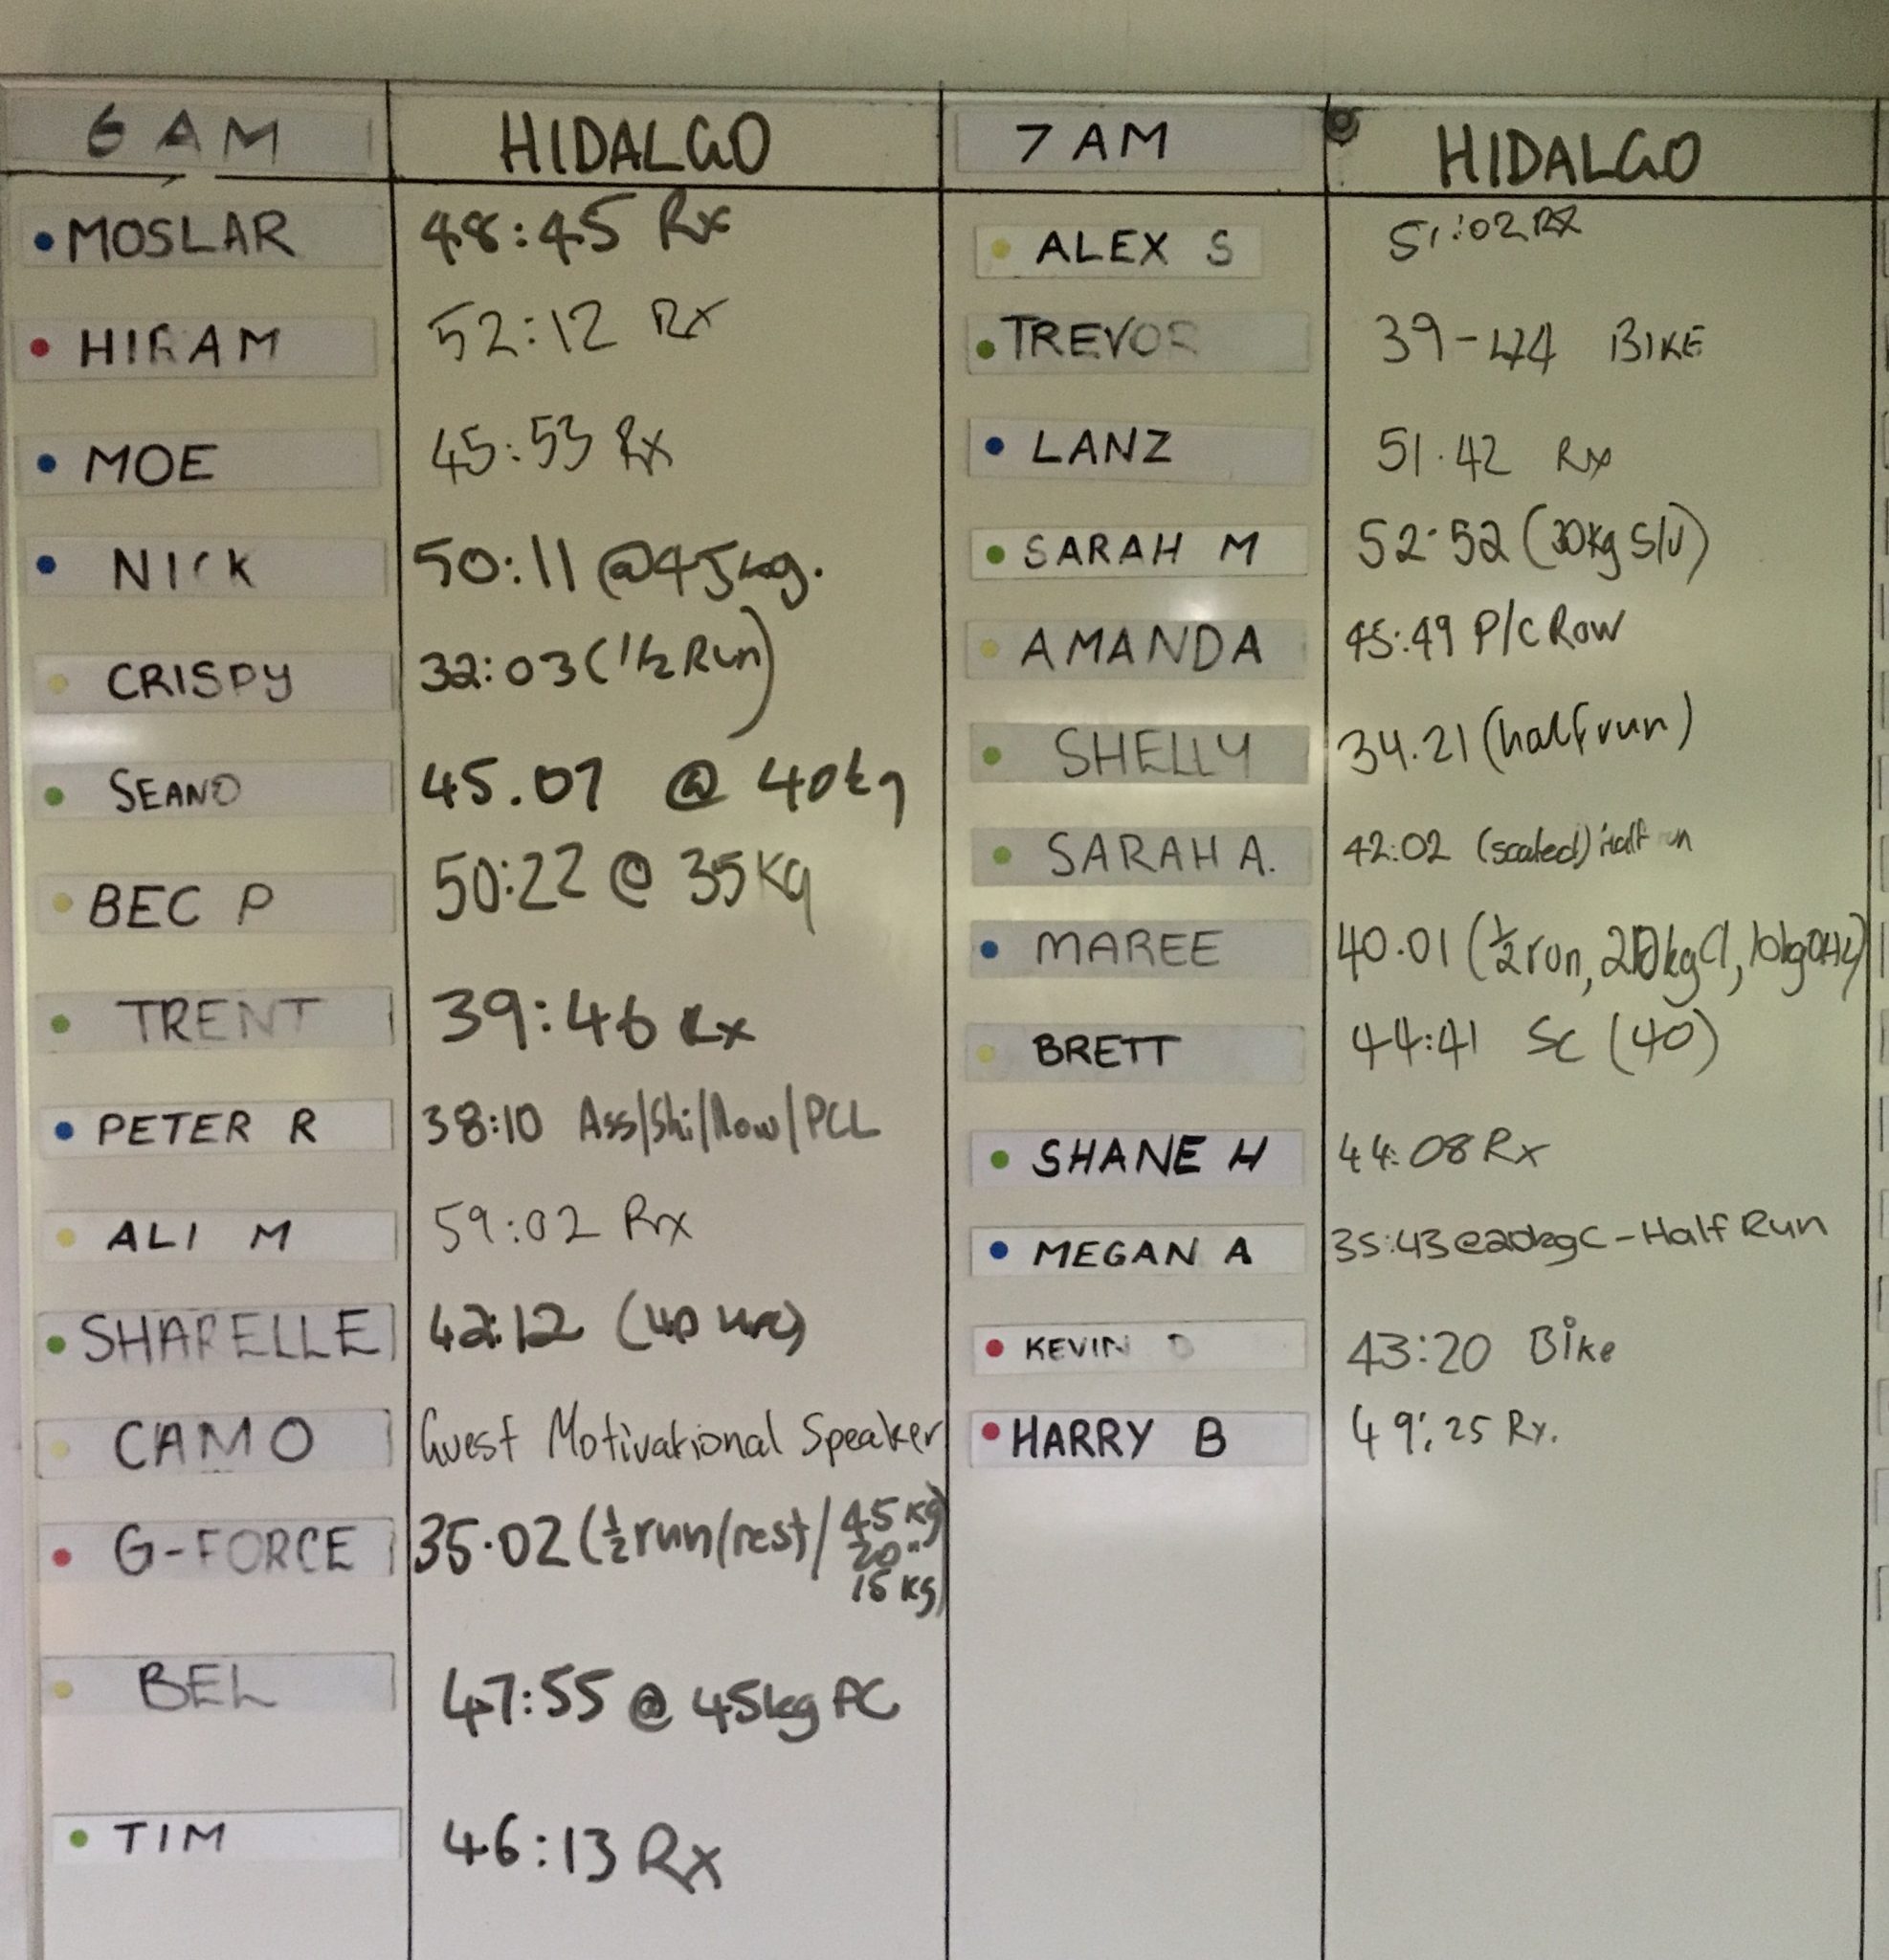 6 AM HIDALGO
MOSLAR 48:45 Rx
HIRAM 52:12 Rx
MOE 45:53 Rx
NICK 50:11 @45kg.
CRISPY 32:03 (1/2 Run)
SEANO 45.07 @ 40kg
BEC P 50:22 @ 35Kg
TRENT 39:46 Rx
PETER R 38:10 Ass/Ski/Row/PCL
ALI M 59:02 Rx
SHARELLE 42:12 (40
CAMO Guest Motivational Speaker
G-FORCE 35.02 (½ run/rest/ 45 kg
20"
15 kg)
BEL 47:55 @ 45kg PC
TIM 46:13 Rx
7 AM HIDALGO
ALEX S 51:02 RX
TREVOR 39-44 BIKE
LANZ 51.42 Rx
SARAH M 52.52 (30kg
AMANDA 45:49 P/C Row
SHELLY 34.21 (half run)
SARAH A. 42:02 (scaled) Half
MAREE 40.01 (½ run, 10kg
BRETT 44:41 Sc (40)
SHANE H 44:08 Rx
MEGAN A 35:43 @20kgC - Half Run
KEVIN D 43:20 Bike
HARRY B 49:25 Rx.